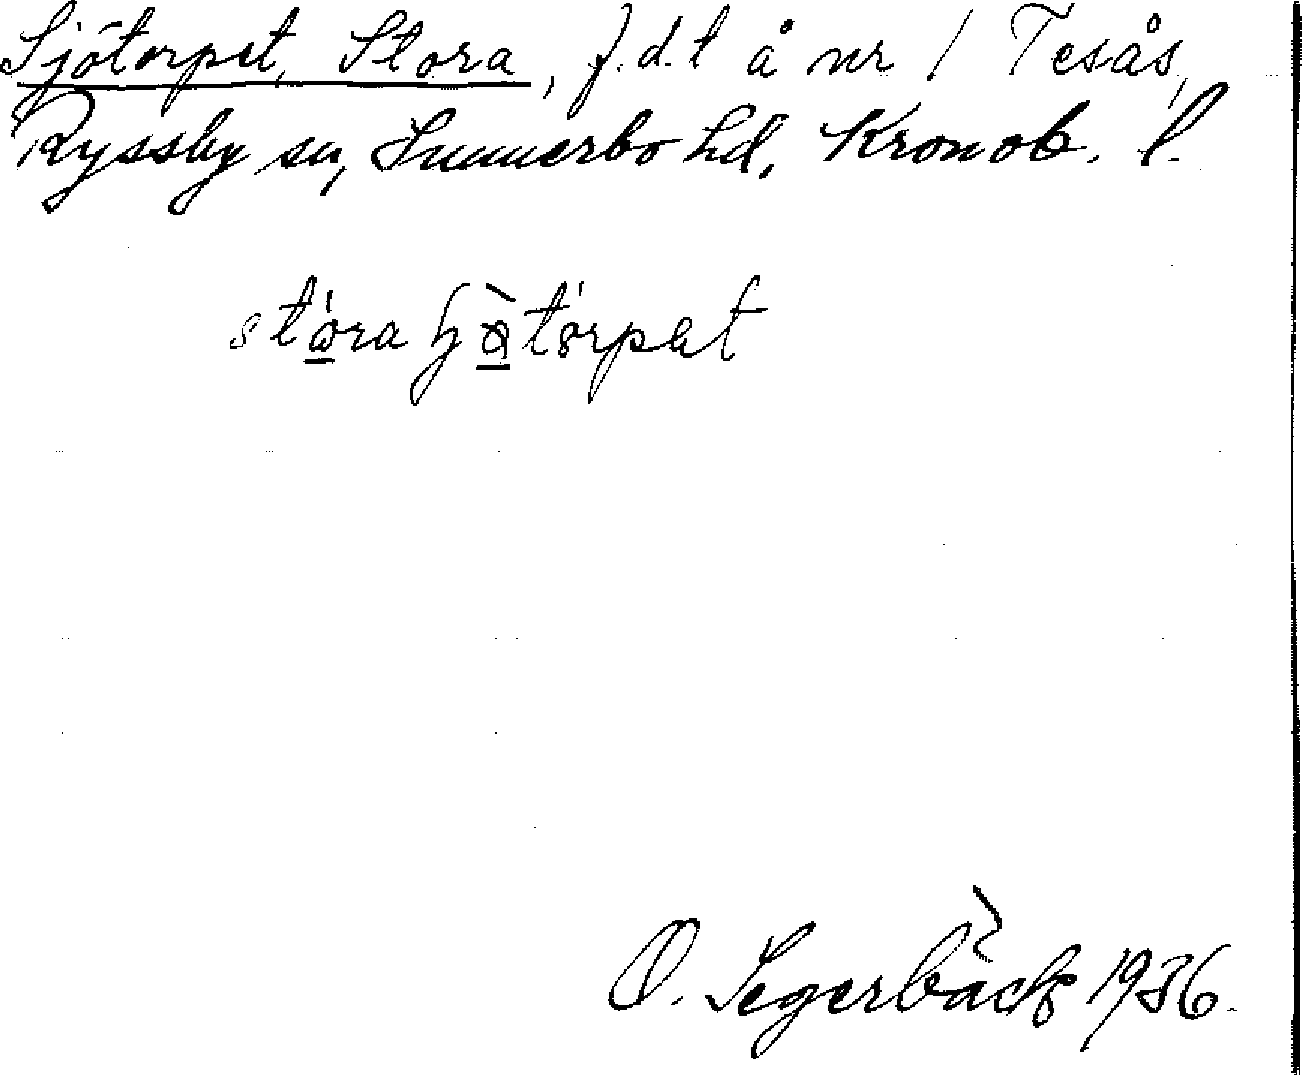 Sjötorpet, Stora, f.d.t å nr 1 Tesås,
Ryssby sn, Sunnerbo hd, Kronob. l.
O. Segerbäck 1936.